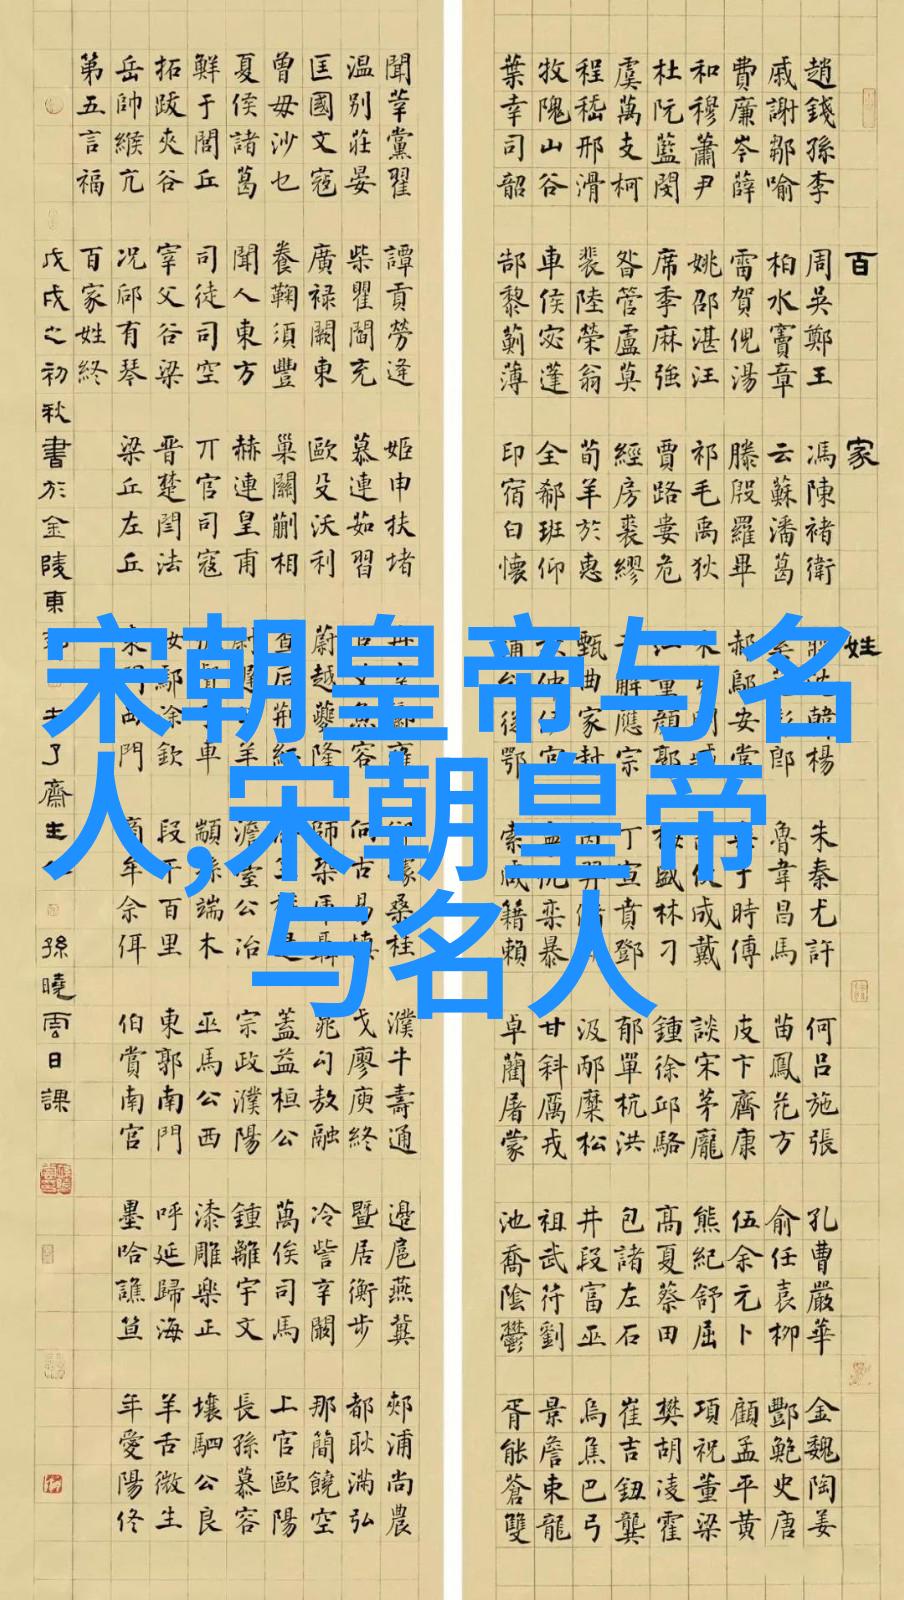 百家姓
趙錢孫李周吳鄭王馮陳褚衛韓楊朱秦尤許何呂施張孔曹嚴華金魏陶姜
戚謝鄒喻柏水竇章云蘇潘葛彭郎魯韋昌馬苗鳳花方俞任袁柳酆鮑史唐
費廉岑薛雷賀倪湯滕殷羅畢郝鄔安常于時傅皮卞齊康伍余元卜顧孟平黃
和穆蕭尹姚邵湛汪祁毛禹狄成戴談宋茅龐熊紀舒屈項祝董梁
杜阮藍閔席季麻強賈路婁危童顏郭盛林刁鍾徐邱駱高夏蔡田樊胡凌霍
虞萬支柯昝管盧莫經房裘繆解應宗丁宣賁鄧郁單杭洪包諸左石崔吉鈕龔
程嵇邢滑裴陸榮翁荀羊於惠甄曲家封汲邴糜松井段富巫烏焦巴弓
牧隗山谷車侯宓蓬全郗班仰仲伊宮仇欒暴甘斜厲戎祖武符劉景詹束龍
葉幸司韶郜黎薊薄印宿白懷鄂索咸籍賴卓藺屠蒙池喬陰鬱胥能蒼雙
聞莘黨翟譚貢勞逄姬申扶堵雍璩桑桂濮牛壽通邊扈燕冀郟浦尚農
温別莊晏柴瞿閻充慕連茹習魚容何古易慎戈廖庾終暨居衡步都耿滿弘
匡國文寇廣禄闕東歐殳沃利蔚越夔隆師聶晁勾敖融冷訾辛闞那簡饒空
曾毋沙乜養鞠須豐巢關蒯相查后荊紅蓋益桓公萬俟司馬上官歐陽
夏侯諸葛聞人東方赫連皇甫尉遲羊澹臺公冶宗政濮陽鍾離宇文長孫慕容
鮮于閭丘司徒司空丌官司寇督車顓孫端木巫馬公西漆雕樂正壤駟公良
拓跋夾谷宰父谷梁晋楚閆法汝鄢涂欽段干百里東郭南門呼延歸海羊舌微生
岳帥緱亢況郈有琴梁丘左丘東門西門商牟余佴伯賞南宮墨哈譙笪年愛陽佟
第五言福百家姓終
戊戌之初秋書於金陵東了齋主孫曉雲日課
宋朝皇帝与名
人,宋朝皇帝
与名人